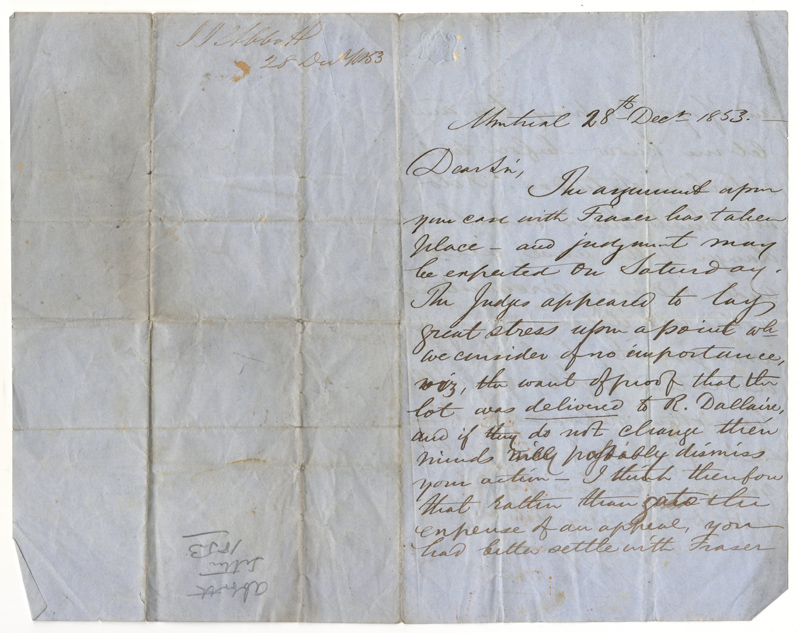 J J C Abbott
28 Decr 1853
Montreal 28th Decr 1853.
Dear Sir,
The argument upon
your case with Fraser has taken
place - and judgment may
be expected on Saturday.
The Judges appeared to lay
great stress upon a point wh
we consider of no importance,
viz, the want of proof that the
lot was delivered to R. Dallaire,
and if they do not change their
minds will probably dismiss
your action - I think therefore
that rather than go to the
expense of an appeal, you
had better settle with Fraser
Abbott
letter
1853